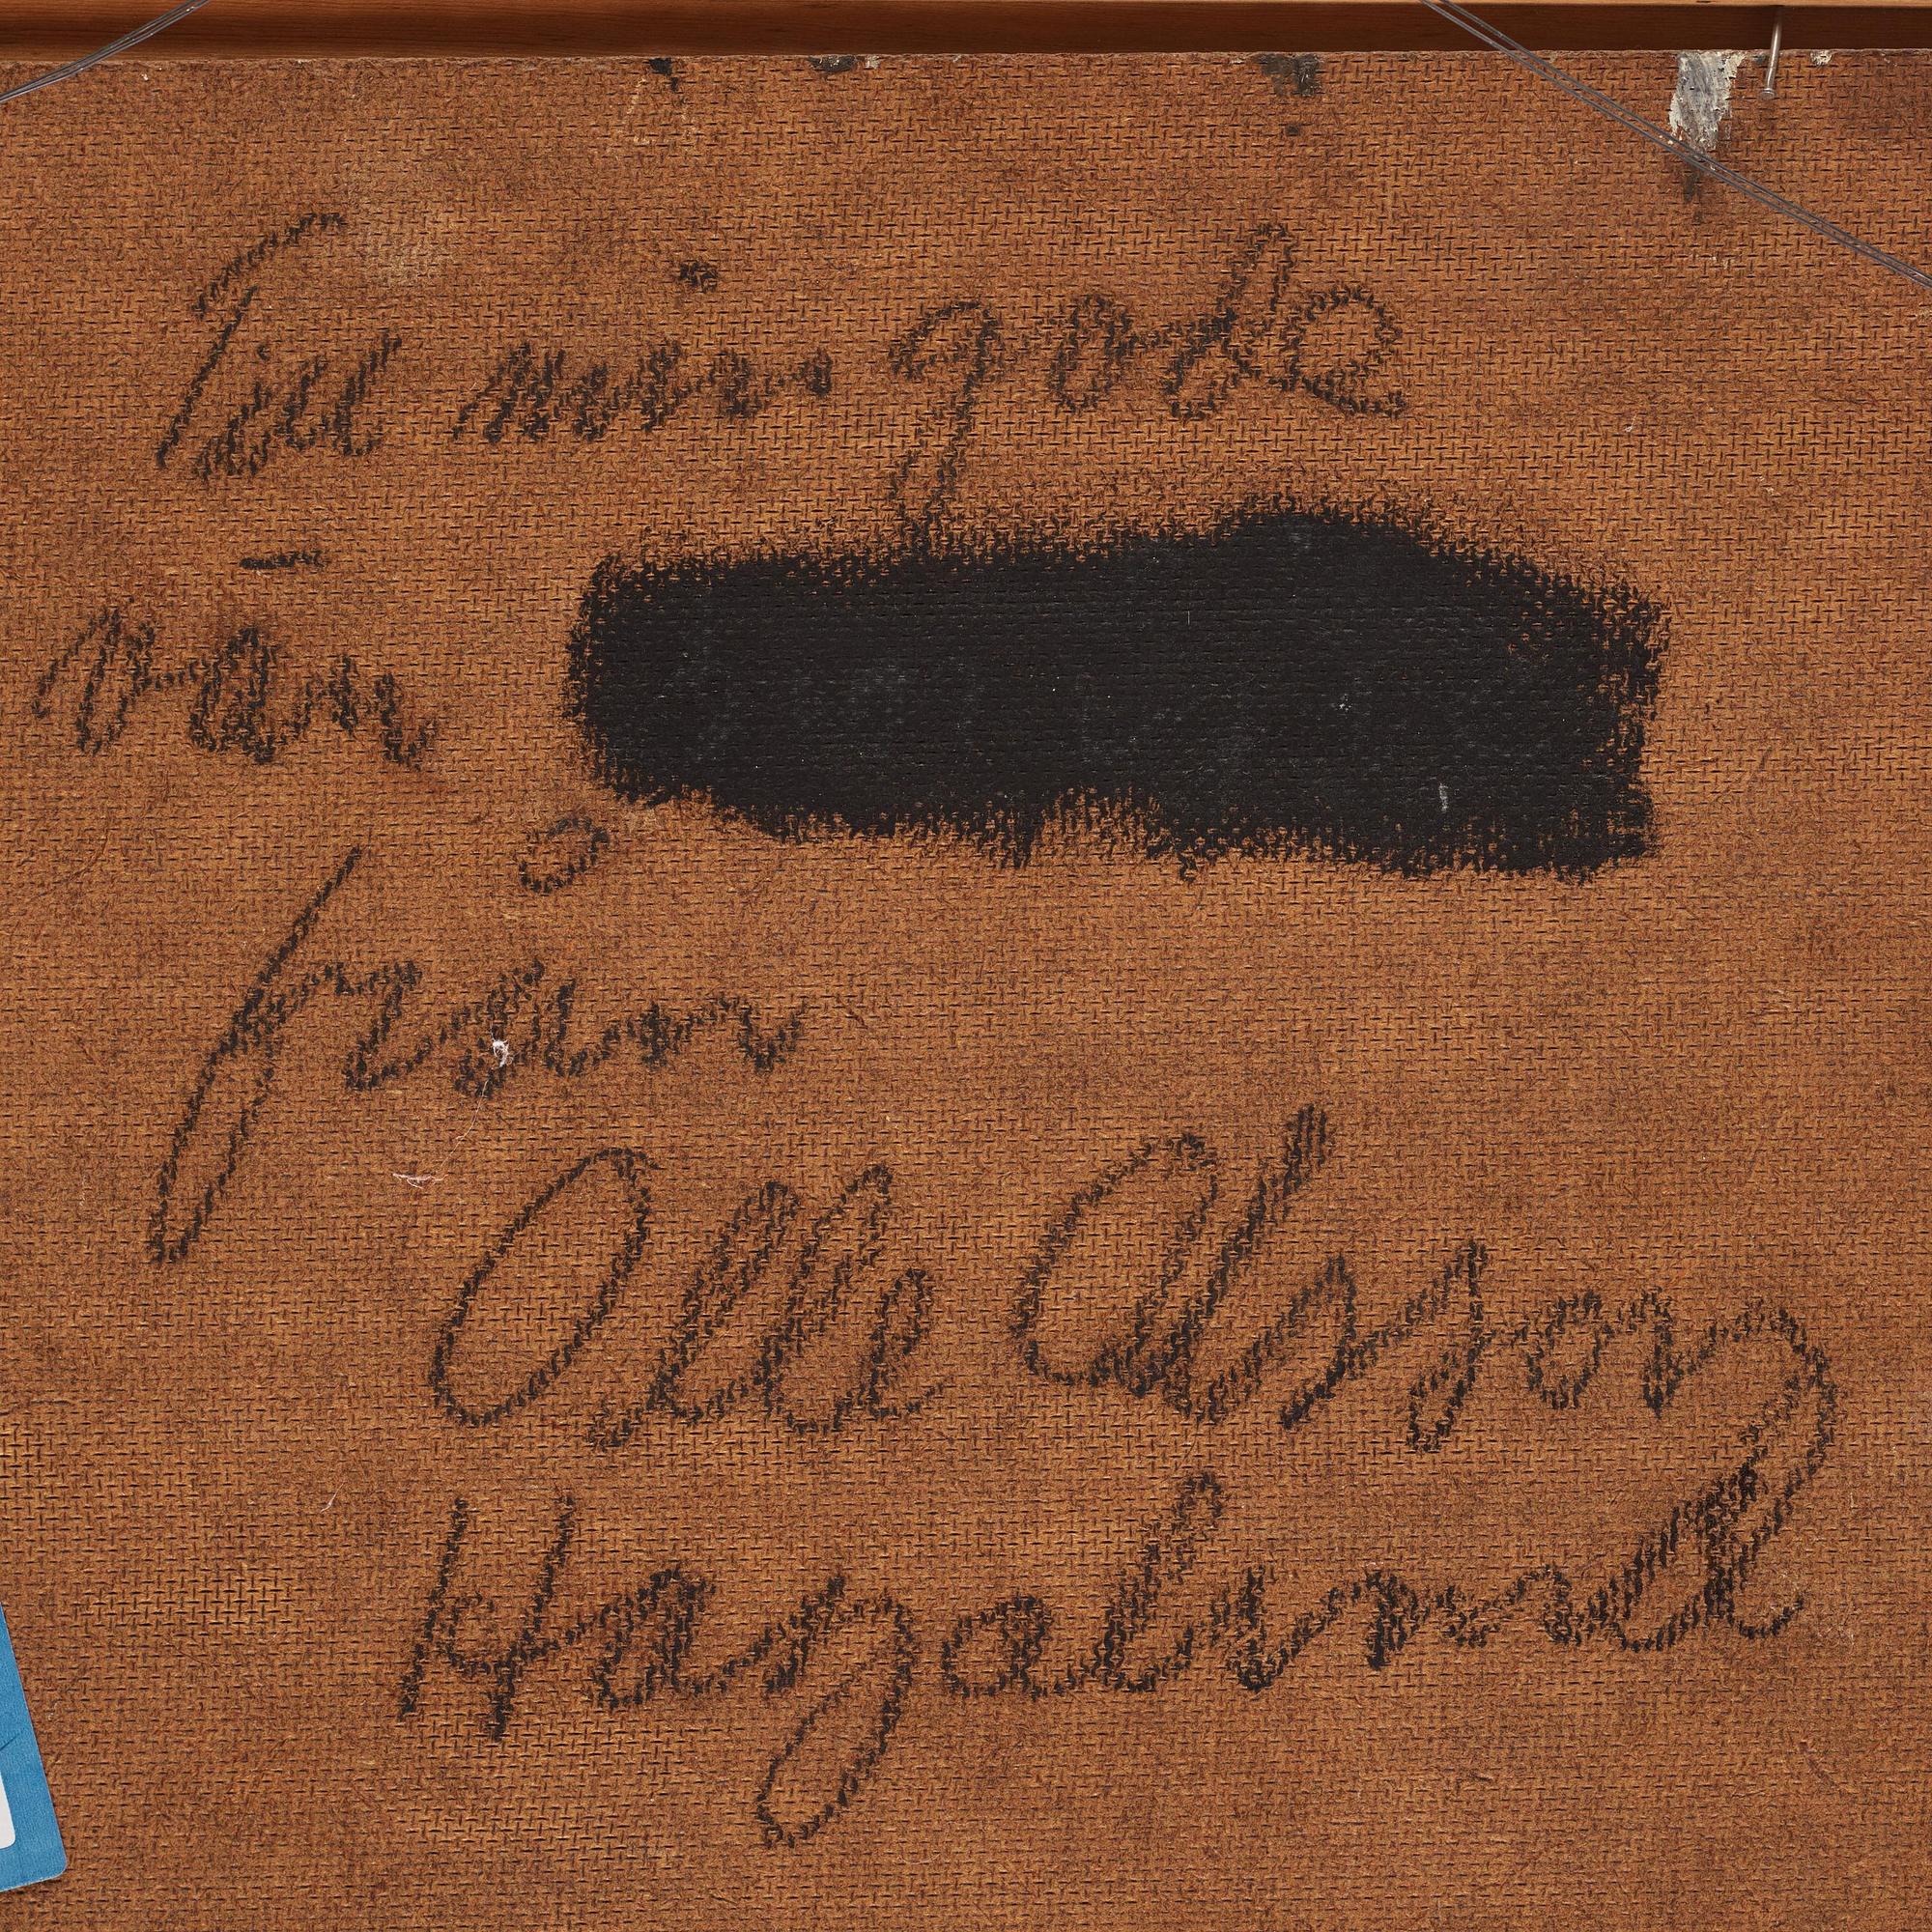 Till min gode
vän
från
Olle Olsson
Hagalund